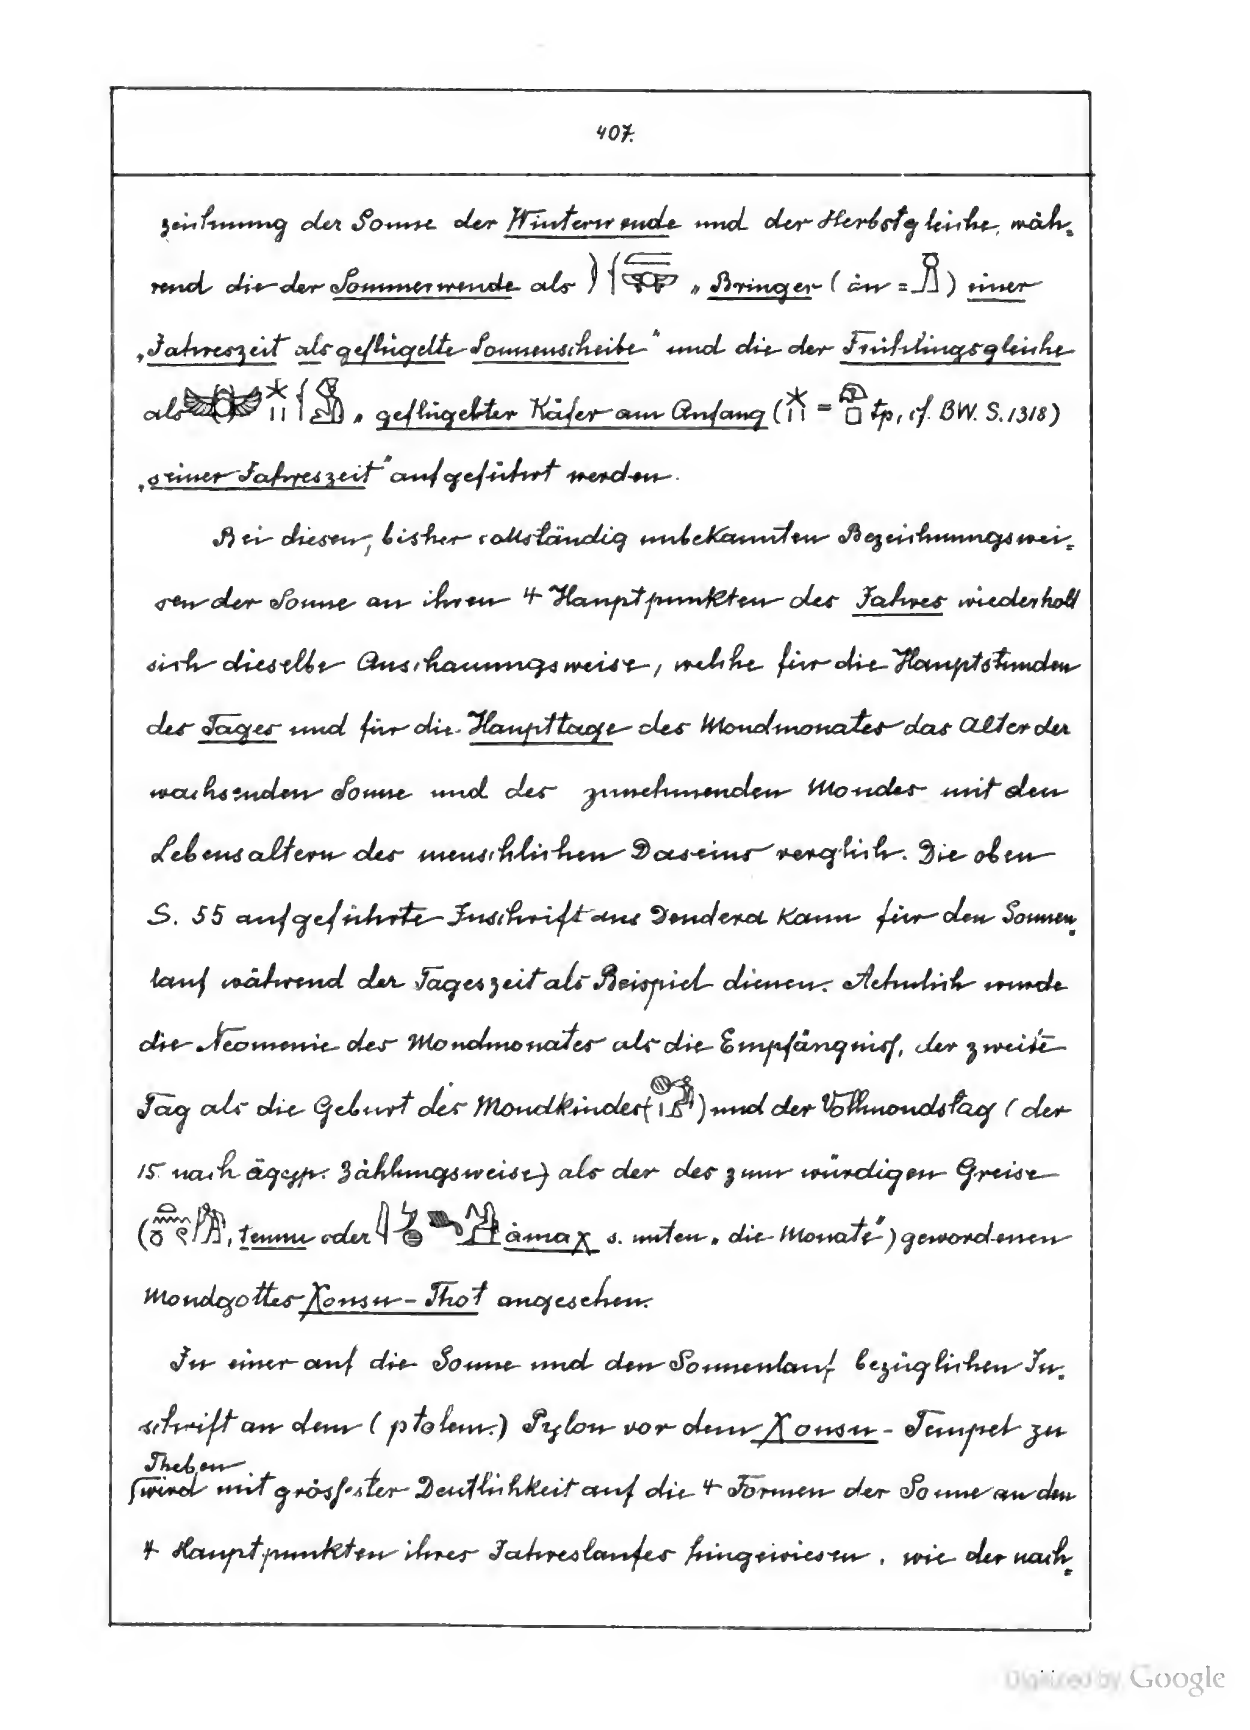 407.
zeichnung der Sonne der Winterwende und der Herbstgleiche, wäh-
rend die der Sommerwende als „Bringer (ȧn = ) einer
„Jahreszeit als geflügelte Sonnenscheibe" und die der Frühlingsgleiche
als „geflügelter Käfer am Anfang ( = tp, cf. BW. S. 1318)
„seiner Jahreszeit" aufgeführt werden.
Bei diesen, bisher vollständig unbekannten Bezeichnungswei-
sen der Sonne an ihren 4 Hauptpunkten des Jahres wiederholt
sich dieselbe Anschauungsweise, welche für die Hauptstunden
des Tages und für die Haupttage des Mondmonates das Alter der
wachsenden Sonne und des zunehmenden Mondes mit den
Lebensaltern des menschlichen Daseins verglich. Die oben
S. 55 aufgeführte Inschrift aus Dendera kann für den Sonnen-
lauf während der Tageszeit als Beispiel dienen. Aehnlich wurde
die Neomenie des Mondmonates als die Empfängniss, der zweite
Tag als die Geburt des Mondkindes ( ) und der Vollmondstag (der
15. nach ägyp. Zählungsweise) als der des zum würdigen Greise
( , tennu oder ȧmaχ s. unten „die Monate") gewordenen
Mondgottes Χonsu-Thot angesehen.
In einer auf die Sonne und den Sonnenlauf bezüglichen In-
schrift an dem (ptolem.) Pylon vor dem Χonsu-Tempel zu
Theben
wird mit grösster Deutlichkeit auf die 4 Formen der Sonne an den
4 Hauptpunkten ihres Jahreslaufes hingewiesen, wie der nach-
Digitized by Google